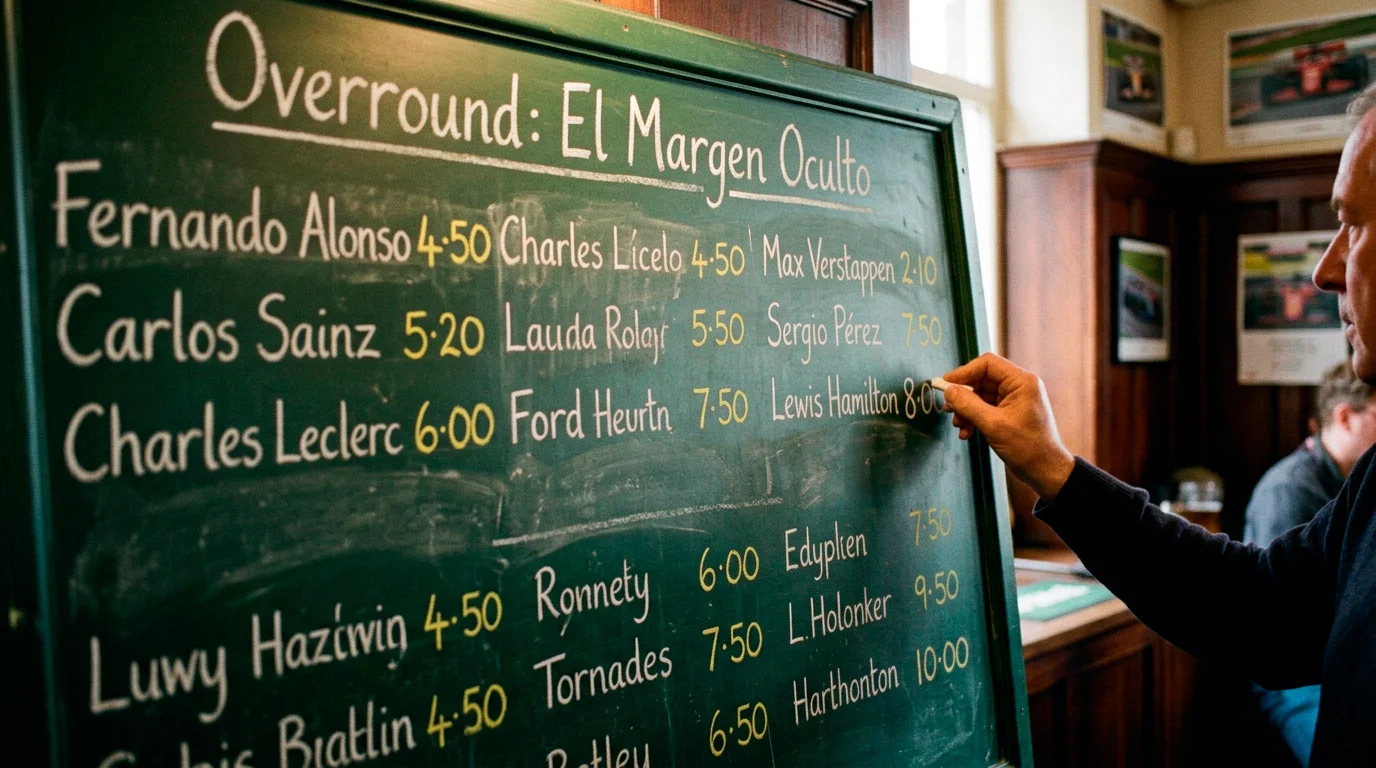 Overround: El Margen Oculto
Fernando Alonso 4.50 Charles Lícelo 4.50 Max Verstappen 2.10
Carlos Sainz 5.20 Lauda Rolayr 5.50 Sergio Pérez 7.50
Charles Leclerc 6.00 Ford Heurtn 7.50 Lewis Hamilton 8.0
Luwy Hazívvin 4.50 Ronnety 6.00 Edyplien 7.50
Biatlin 4.50 Tornades 7.50 L. Holonker 9.50
6.50 Harthonton 10.00